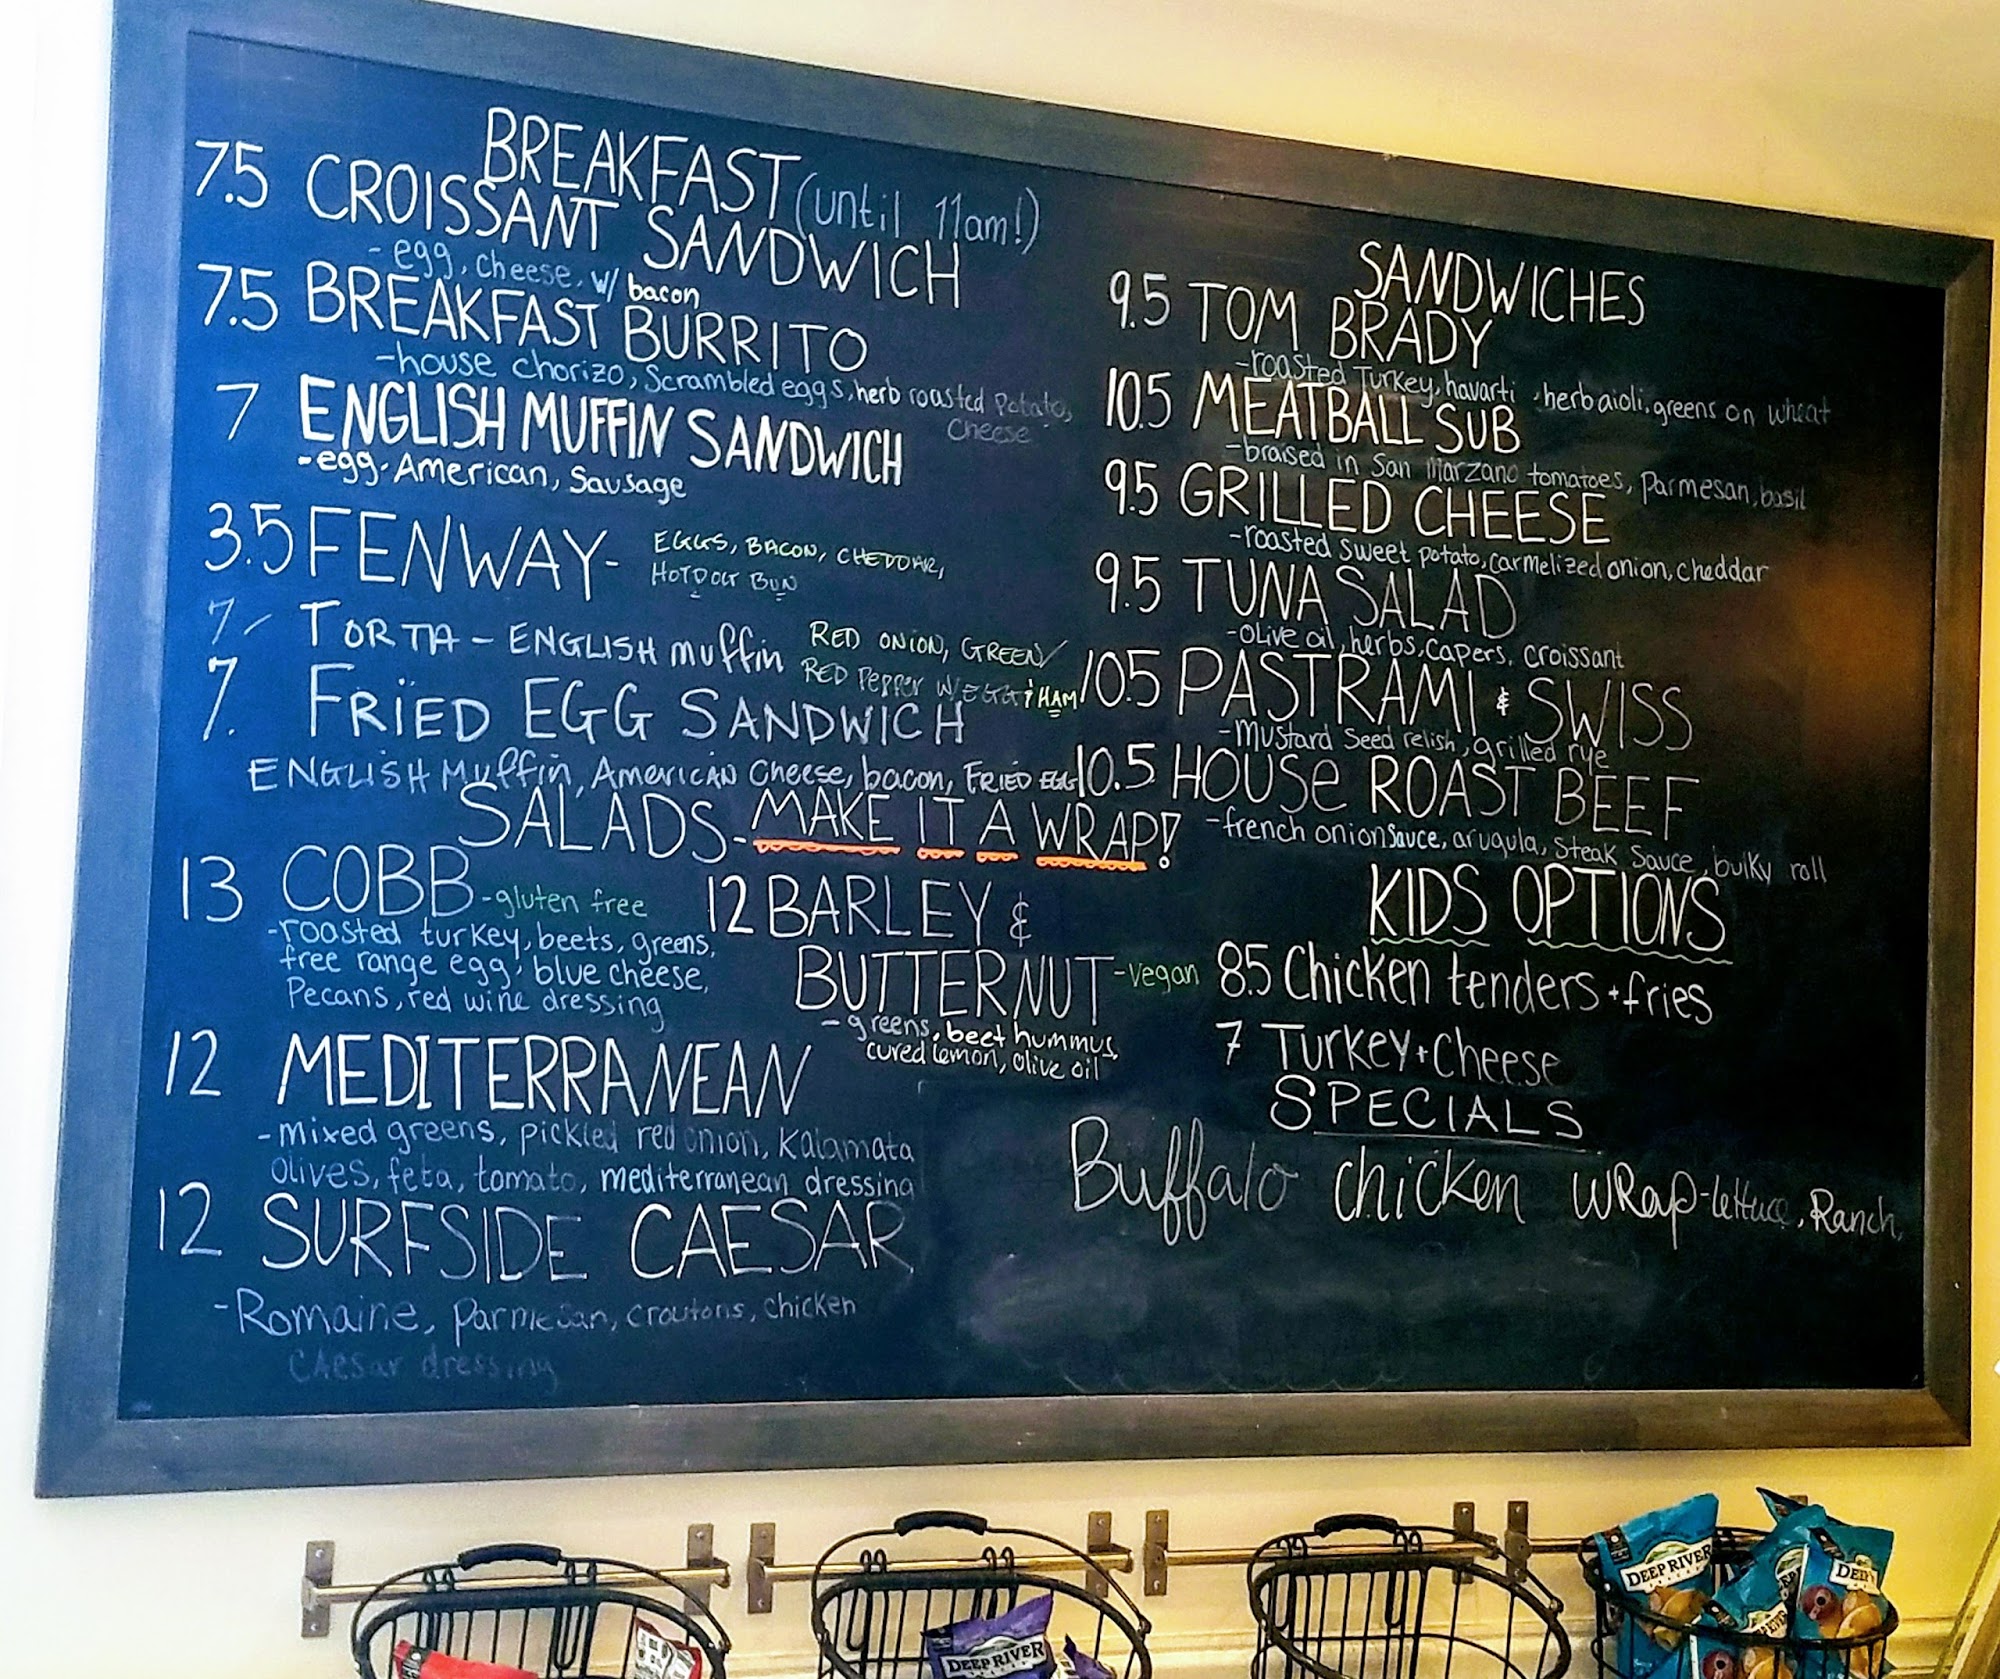 BREAKFAST (until 11am!)
7.5 CROISSANT SANDWICH
- egg, cheese, w/ bacon
7.5 BREAKFAST BURRITO
-house chorizo, scrambled eggs, herb roasted potato,
cheese
7 ENGLISH MUFFIN SANDWICH
-egg, American, Sausage
3.5 FENWAY- EGGS, BACON, CHEDDAR,
HOTDOG BUN
7/ TORTA - ENGLISH muffin RED ONION, GREEN/
RED Pepper W/ EGG & HAM
7. FRIED EGG SANDWICH
ENGLISH Muffin, AMERICAN Cheese, bacon, FRIED EGG
SALADS- MAKE IT A WRAP!
13 COBB -gluten free
-roasted turkey, beets, greens,
free range egg, blue cheese,
Pecans, red wine dressing
12 BARLEY &
BUTTERNUT -vegan
- greens, beet hummus,
cured lemon, olive oil
12 MEDITERRANEAN
-mixed greens, pickled red onion, Kalamata
olives, feta, tomato, mediterranean dressing
12 SURFSIDE CAESAR
-Romaine, parmesan, croutons, chicken
CAesar dressing
SANDWICHES
9.5 TOM BRADY
-roasted Turkey, havarti, herb aioli, greens on wheat
10.5 MEATBALL SUB
-braised in San Marzano tomatoes, parmesan, basil
9.5 GRILLED CHEESE
-roasted sweet potato, carmelized onion, cheddar
9.5 TUNA SALAD
-olive oil, herbs, capers, croissant
10.5 PASTRAMI & SWISS
-mustard seed relish, grilled rye
10.5 HOUSE ROAST BEEF
-french onion sauce, arugula, steak sauce, bulky roll
KIDS OPTIONS
8.5 Chicken tenders + fries
7 Turkey + Cheese
SPECIALS
Buffalo chicken wRap - lettuce, Ranch,
DEEP RIVER
DEEP RIVER
DEEP